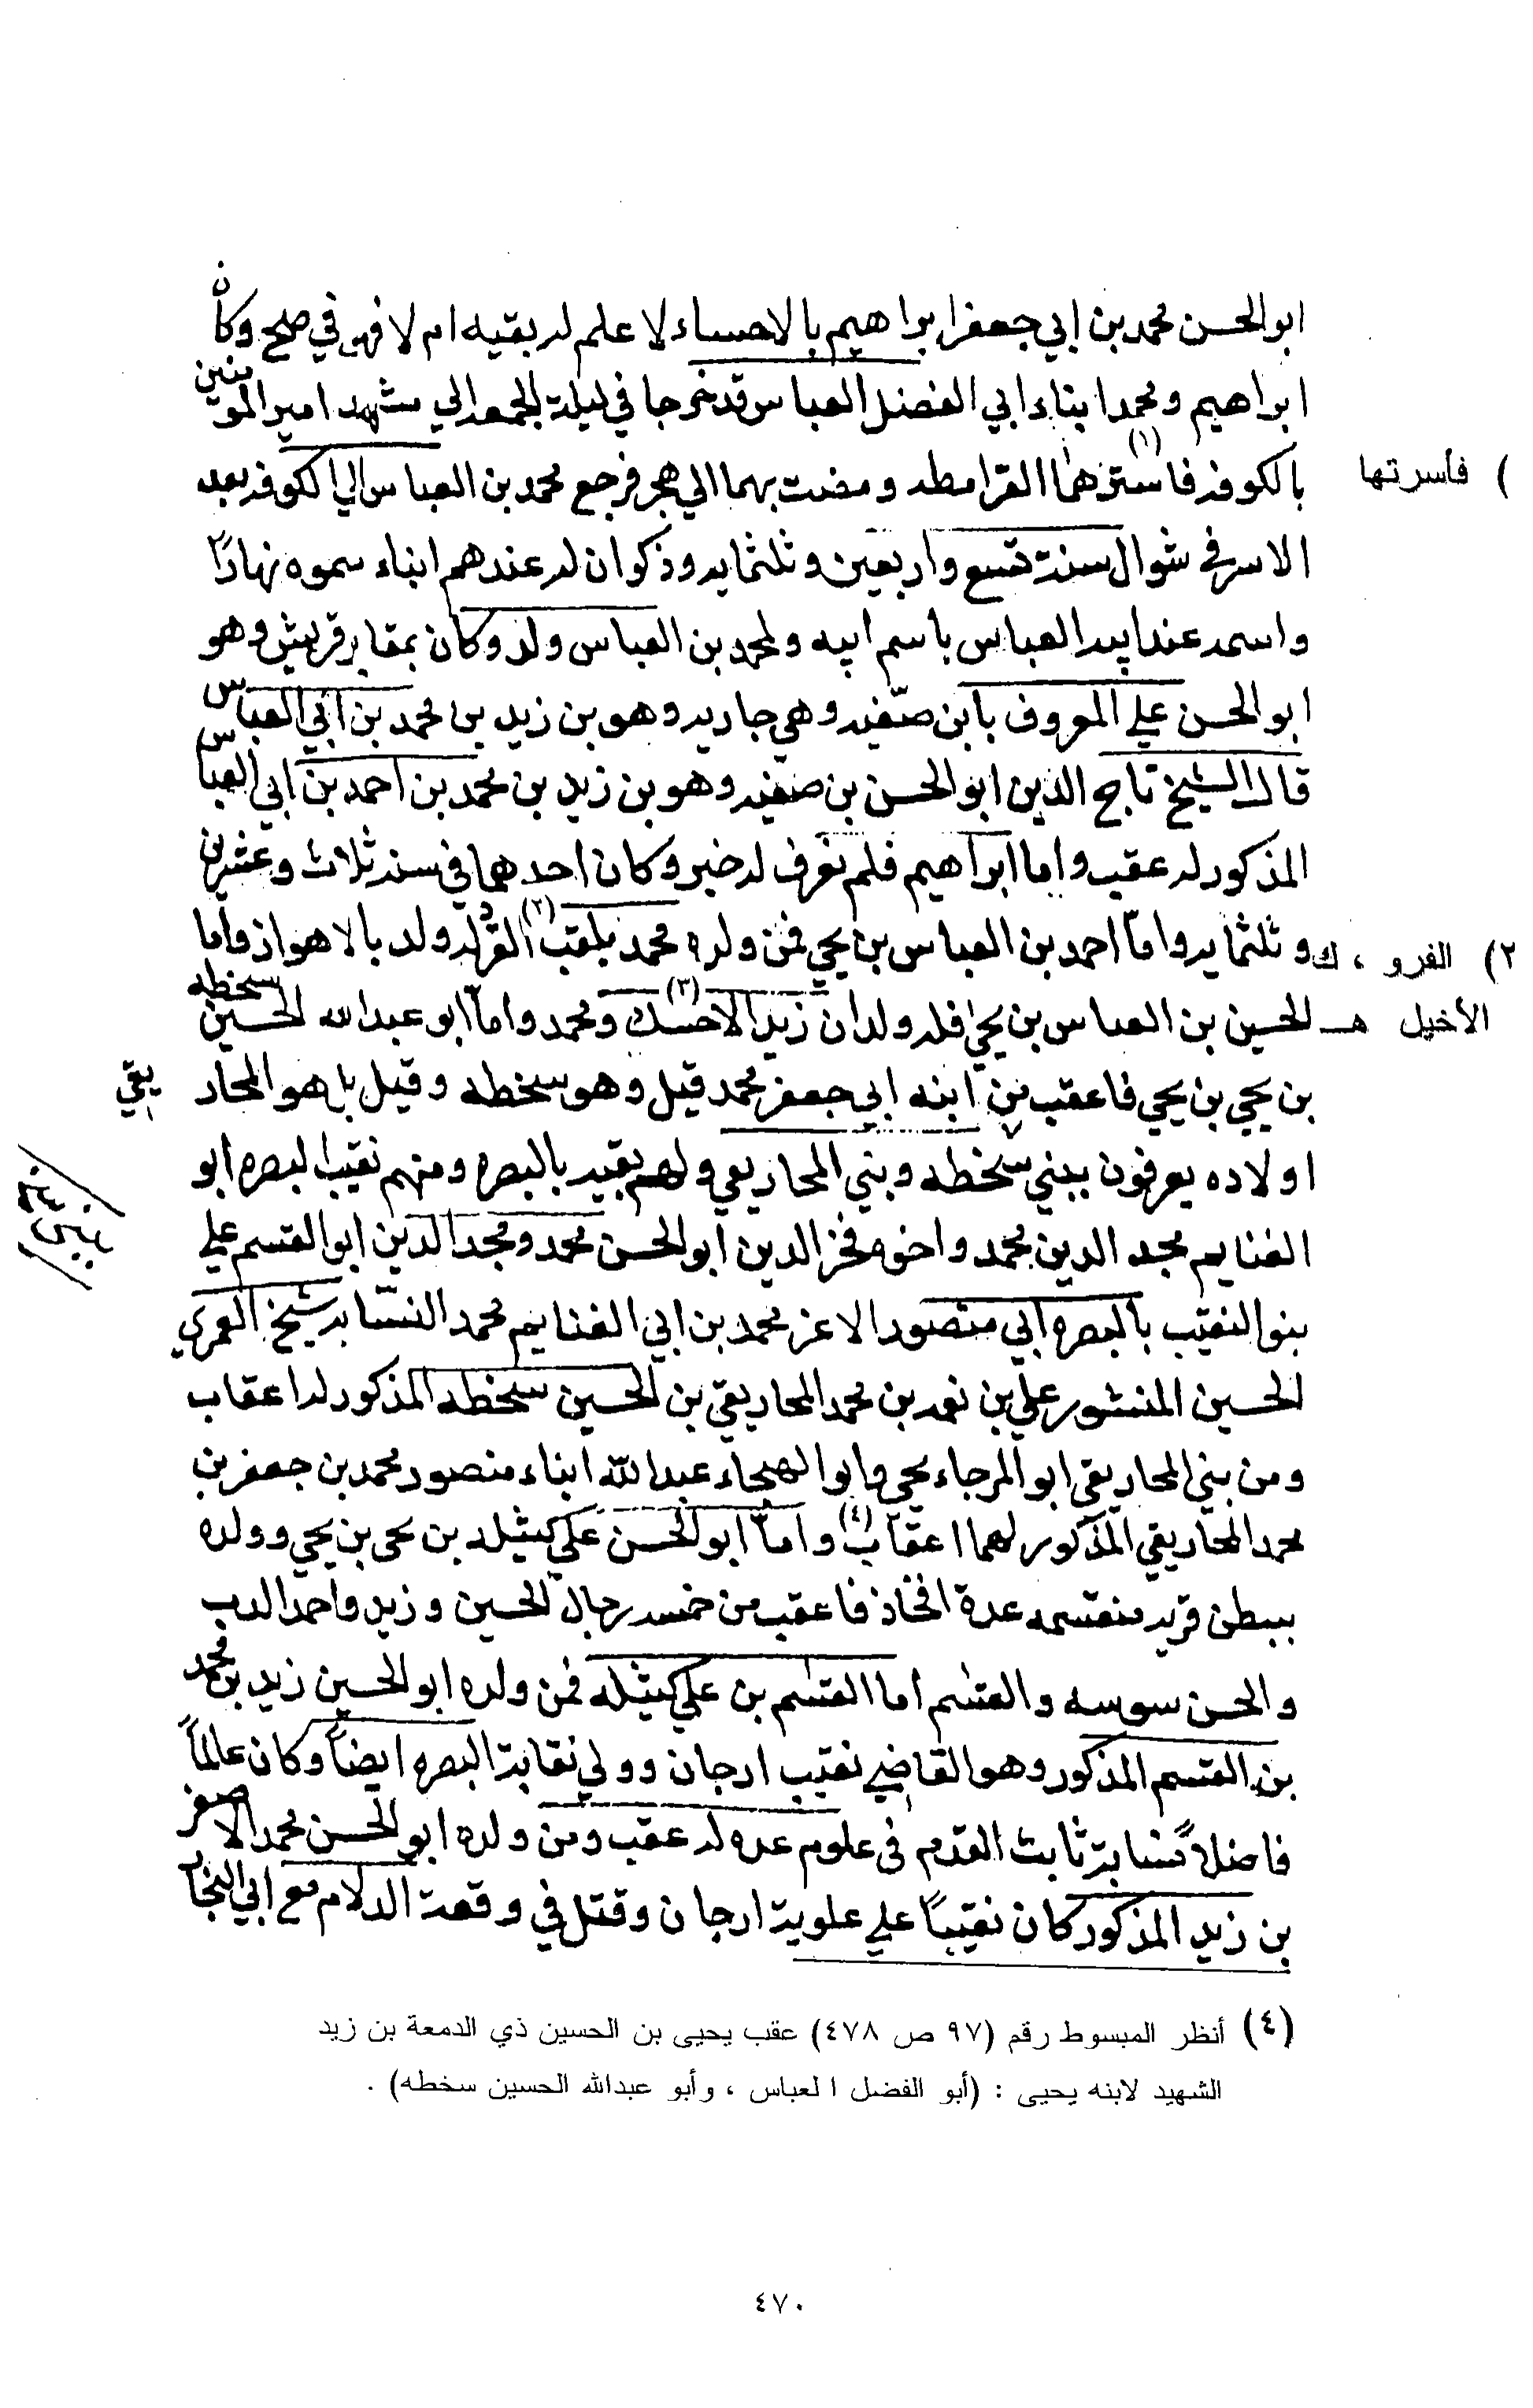 ابوالحسن محمد بن ابي جعفر ابراهيم بالاحساء لا علم له بقيه ام لا فهو في صح وكان
ابراهيم ومحمدا بناء ابي الفضل العباس قد خرجا في ليلة الجمعه الي مشهد امير المومنين
بالكوفه فاستزهما (١) القرامطه ومضت بهما الي هجر فرجع محمد بن العباس الي الكوفه بعد
) فأسرتها
الاسر في شوال سنة تسع واربعين وثلثمايه وذكر ان له عندهم ابناء سموه نهارًا
واسمه عند ابيه العباس باسم ابيه ولمحمد بن العباس ولد وكان بمقابر قريش وهو
ابو الحسن علي المعروف بابن صفيه وهي جاريه وهو بن زيد بن محمد بن ابي العباس
قال الشيخ تاج الدين ابو الحسن بن صفيه وهو بن زيد بن محمد بن احمد بن ابي العباس
المذكور له عقب واما ابراهيم فلم نعرف له خبر وكان احدهما في سنه ثلاث وعشرين
وثلثمايه واما احمد بن العباس بن يحيي فمن ولده محمد يلقب (٢) له ولد بالاهواز واما
٢) الفرو ، ك
الحسين بن العباس بن يحيي فله ولدان زيد الاحسك (٣) ومحمد واما ابو عبدالله الحسين سخطه
الأخيل هـ
بن يحيي بن يحيي فاعقب من ابنه ابي جعفر محمد قيل وهو سخطه وقيل بل هو المحار
يقي
اولاده يعرفون ببني سخطه وبني المحاريقي ولهم بقيه بالبصره ومنهم نقيب البصره ابو
الغنايم مجد الدين محمد واخوه فخر الدين ابو الحسن محمد ومجد الدين ابو القسم علي
بنو النقيب بالبصره ابي منصور الاعز محمد بن ابي الغنايم محمد النسّابه شيخ العمري
الحسين المنشور علي بن نعمه بن محمد المحاريقي بن الحسين سخطه المذكور له اعقاب
ومن بني المحاريقي ابو المرجاء يحيي وابو الهيجاء عبدالله ابناء منصور محمد بن جعفر بن
محمد المحاريقي المذكور لهما اعقاب (٤) واما ابو الحسن علي كتيله بن يحيي بن يحيي وولده
ببطن قريه منقسمه عدة افخاذ فاعقب من خمسه رجال الحسين وزيد واحمد الدب
والحسن سوسه والقسم اما القسم بن علي كتيله فمن ولده ابو الحسين زيد بن محمد
بن القسم المذكور وهو القاضي نقيب ارجان وولي نقابة البصره ايضاً وكان عالماً
فاضلاً نسابة ثابت القدم في علوم عده له عقب ومن ولده ابو الحسن محمد الاصغر
بن زيد المذكور كان نقيبًا علي علوية ارجان وقتل في وقعة الدلام مع ابي
(٤) أنظر المبسوط رقم (٩٧ ص ٤٧٨) عقب يحيى بن الحسين ذي الدمعة بن زيد
الشهيد لابنه يحيى : (أبو الفضل العباس ، وأبو عبدالله الحسين سخطه) .
٤٧٠